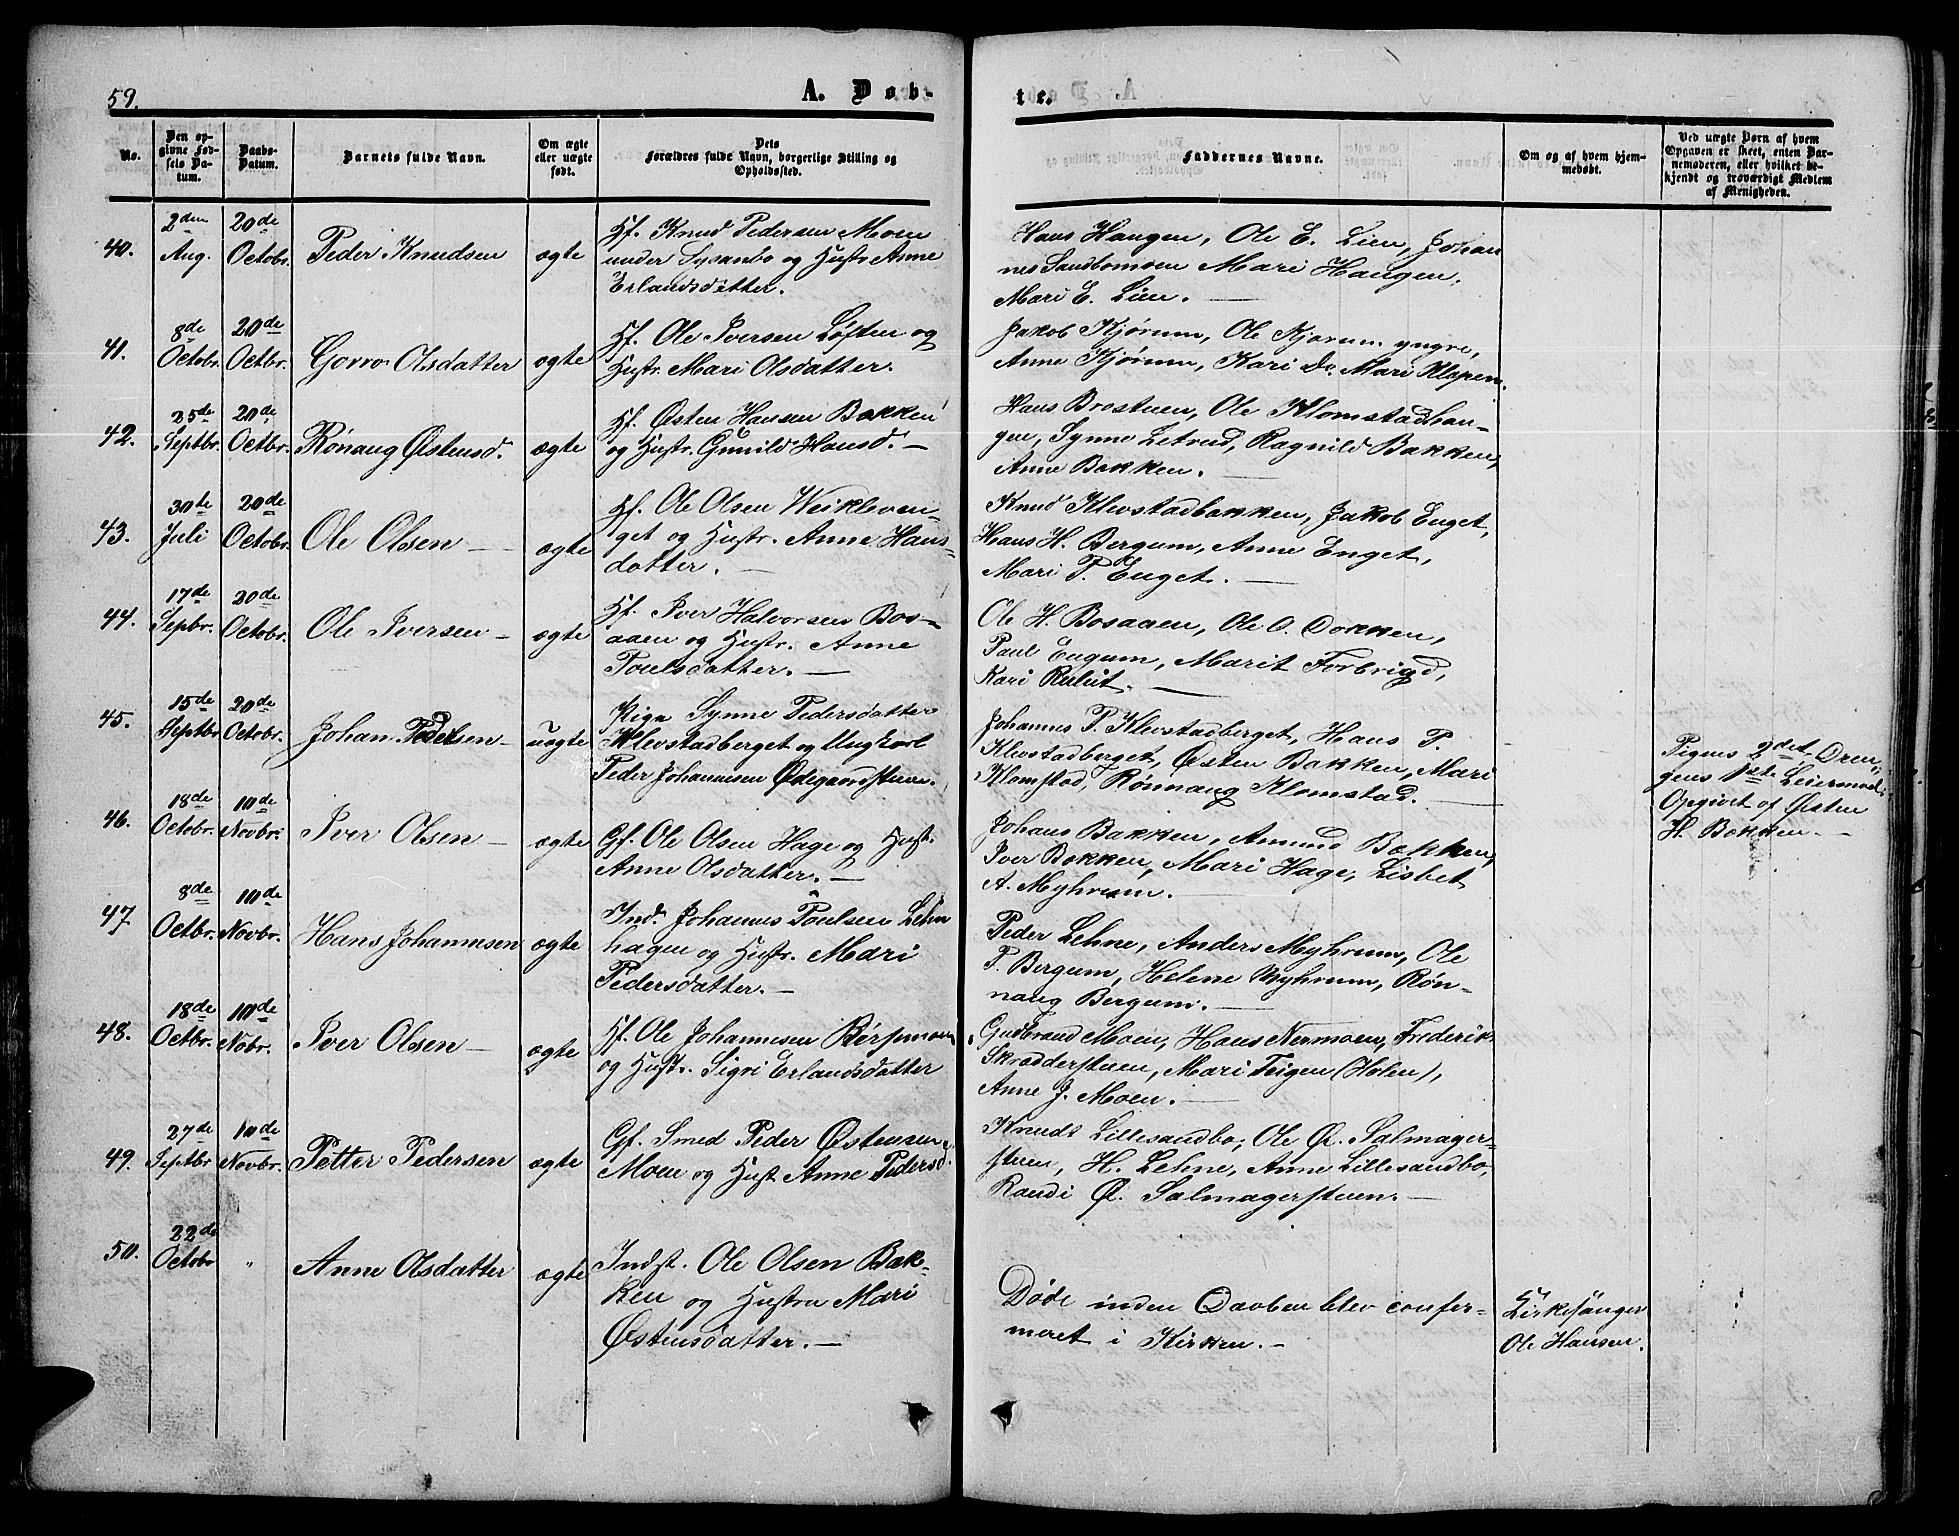 59.
A. Døb-
te.
No.
Den op-
givne Fød-
sels Da-
tum.
Daabs-
Datum.
Barnets fulde Navn.
Om ægte
eller uægte
født.
Dets
Forældres fulde Navn, borgerlige Stilling og
Opholdssted.
Faddernes Navne.
Om og af hvem hjem-
medøbt.
Ved uægte Børn af hvem
Opgaven er skeet, enten Bar-
nemoderen, eller hvilket be-
kjendt og troværdigt Medlem
af Menigheden.
40.
2den
Aug.
20de
Octobr.
Peder Knudsen
ægte
Hf. Knud Pedersen Moen
under Sysanbo og Hustr Anne
Erlandsdatter.
Hans Haugen, Ole E. Lien, Johan
nes Sandbomoen Mari Haugen,
Mari E. Lien. —
41.
8de
Octobr.
20de
Octbr.
Gorro Olsdatter
ægte
Hf. Ole Iversen Løften og
Hustr. Mari Olsdatter.
Jakob Kjørum, Ole Kjorum yngre,
Anne Kjørum, Kari Do. Mari Klapen.
42.
25de
Septbr.
20de
Octbr.
Rønaug Østensd.
ægte
Hf. Østen Hansen Bakken
og Hustr. Gunild Hansd. —
Hans Brostuen, Ole Klomstadhau-
gen, Synne Letrud, Ragnild Bakken,
Anne Bakken.
43.
30te
Juli
20de
Octobr.
Ole Olsen —
ægte
Hf. Ole Olsen Weikleven-
get og Hustr. Anne Hans-
datter. —
Knud Klevstadbakken, Jakob Enget,
Hans H. Bergum, Anne Enget,
Mari P. Enget. —
44.
17de
Sepbr.
20de
Octobr.
Ole Iversen —
ægte
Hf. Iver Halvorsen Bos-
aaen og Hustr. Anne
Poulsdatter. —
Ole H. Bosaaen, Ole O. Dokken,
Paul Engum, Marit Forbrigd,
Kari Rulut. —
45.
15de
Septbr
20de
Octobr.
Johan Pedersen —
uægte
Pige Synne Pedersdatter
Klevstadberget og Ungkarl
Peder Johannesen Ødegaardstuen.
Johannes P. Klevstadberget, Hans P.
Klevstadberget, Østen Bakken, Mari
Klomstad, Rønnaug Klomstad. —
Pigens 2det, Dren-
gens 1ste Leiermaal.
Opgivet af Østen
H. Bakken. —
46.
18de
Octobr.
10de
Novbr.
Iver Olsen —
ægte
Gf. Ole Olsen Hage og Hust.
Anne Olsdatter. —
Johans Bakken, Amund Bakken,
Iver Bakken, Mari Hage, Lisbet
A. Myhrum. —
47.
8de
Octbr.
10de
Novbr.
Hans Johannesen
ægte
Ind. Johannes Poulsen Lehn
hagen og Hustr. Mari
Pedersdatter. —
Peder Lehne, Anders Myhrum, Ole
P. Bergum, Helene Myhrum, Røn-
naug Bergum. —
48.
18de
Octbr.
10de
Nobr.
Iver Olsen —
ægte
Hf. Ole Johannesen
og Hustr. Sigri Erlandsdatter
Gudbrand Moen, Hans Nermoen, Frederik
Skrædderstuen, Mari Teigen (Holen),
Anne J. Moen. —
49.
27de
Septbr
10de
Novbr.
Petter Pedersen
ægte
Gf. Smed Peder Østensen
Moen og Hust Anne Pedersd.
Knudt Lillesandbo, Ole Ø. Salmager-
stuen, H. Lehne, Anne Lillesandbo,
Randi Ø. Salmagerstuen. —
50.
22de
Octobr
"
Anne Olsdatter
ægte
Indst. Ole Olsen Bak-
ken og Hustru Mari
Østensdatter. —
Døde inden Daaben blev confer-
meret i Kirken. —
Kirkesanger
Ole Hansen.